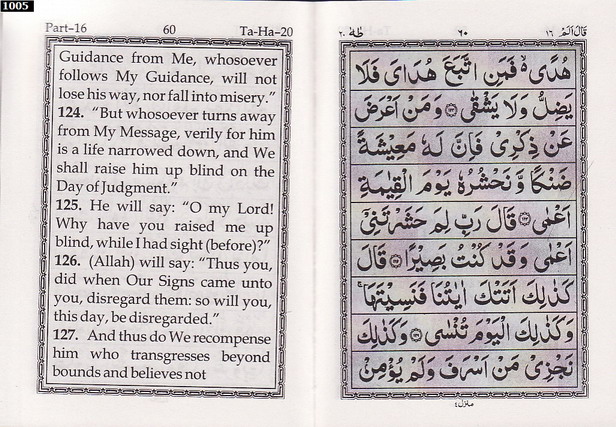 1005
Part-16 60 Ta-Ha-20
Guidance from Me, whosoever
follows My Guidance, will not
lose his way, nor fall into misery.”
124. “But whosoever turns away
from My Message, verily for him
is a life narrowed down, and We
shall raise him up blind on the
Day of Judgment.”
125. He will say: “O my Lord!
Why have you raised me up
blind, while I had sight (before)?”
126. (Allah) will say: “Thus you,
did when Our Signs came unto
you, disregard them: so will you,
this day, be disregarded.”
127. And thus do We recompense
him who transgresses beyond
bounds and believes not
قال الم ١٦ ٦٠ طه ٢٠
هُدًى ۙ فَمَنِ اتَّبَعَ هُدَايَ فَلَا
يَضِلُّ وَلَا يَشْقٰى ۝ وَمَنْ اَعْرَضَ
عَنْ ذِكْرِيْ فَاِنَّ لَهٗ مَعِيْشَةً
ضَنْكًا وَّ نَحْشُرُهٗ يَوْمَ الْقِيٰمَةِ
اَعْمٰى ۝ قَالَ رَبِّ لِمَ حَشَرْتَنِيْٓ
اَعْمٰى وَقَدْ كُنْتُ بَصِيْرًا ۝ قَالَ
كَذٰلِكَ اَتَتْكَ اٰيٰتُنَا فَنَسِيْتَهَا ۚ
وَكَذٰلِكَ الْيَوْمَ تُنْسٰى ۝ وَكَذٰلِكَ
نَجْزِيْ مَنْ اَسْرَفَ وَلَمْ يُؤْمِنْۢ
منزل ٤